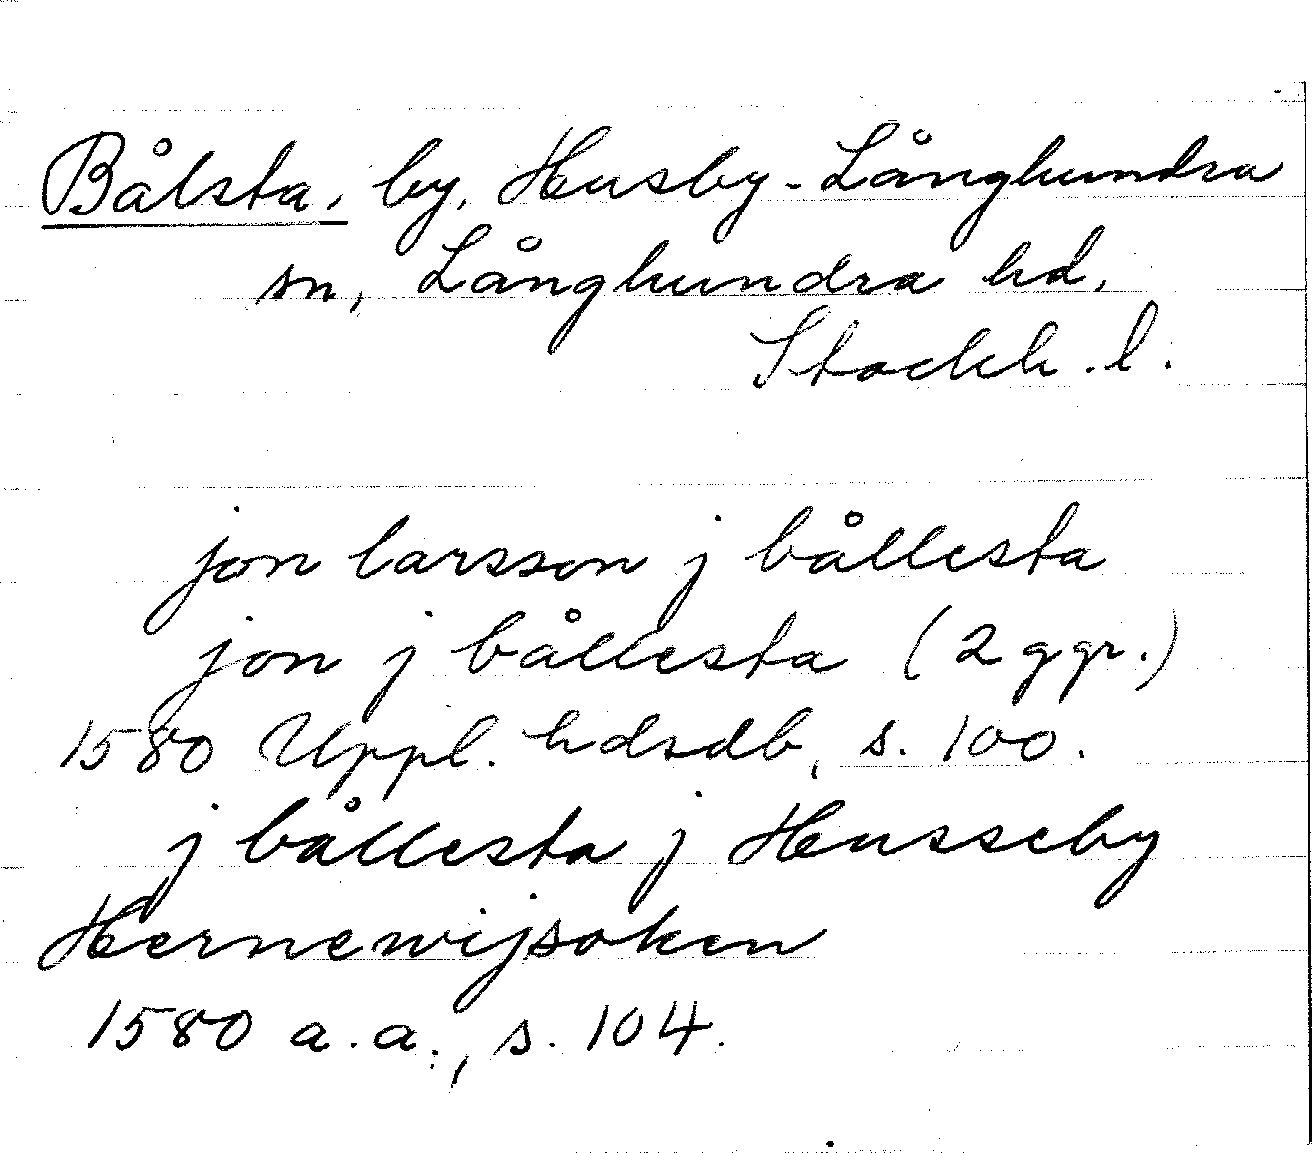 Bålsta, by, Husby-Långhundra
sn, Långhundra hd,
Stockh.l.
jon larsson j bållesta
jon j bållesta (2 ggr.)
1580 Uppl. hdsdb, s. 100.
j bållesta j Husseby
Hernewijsoken
1580 a.a., s. 104.